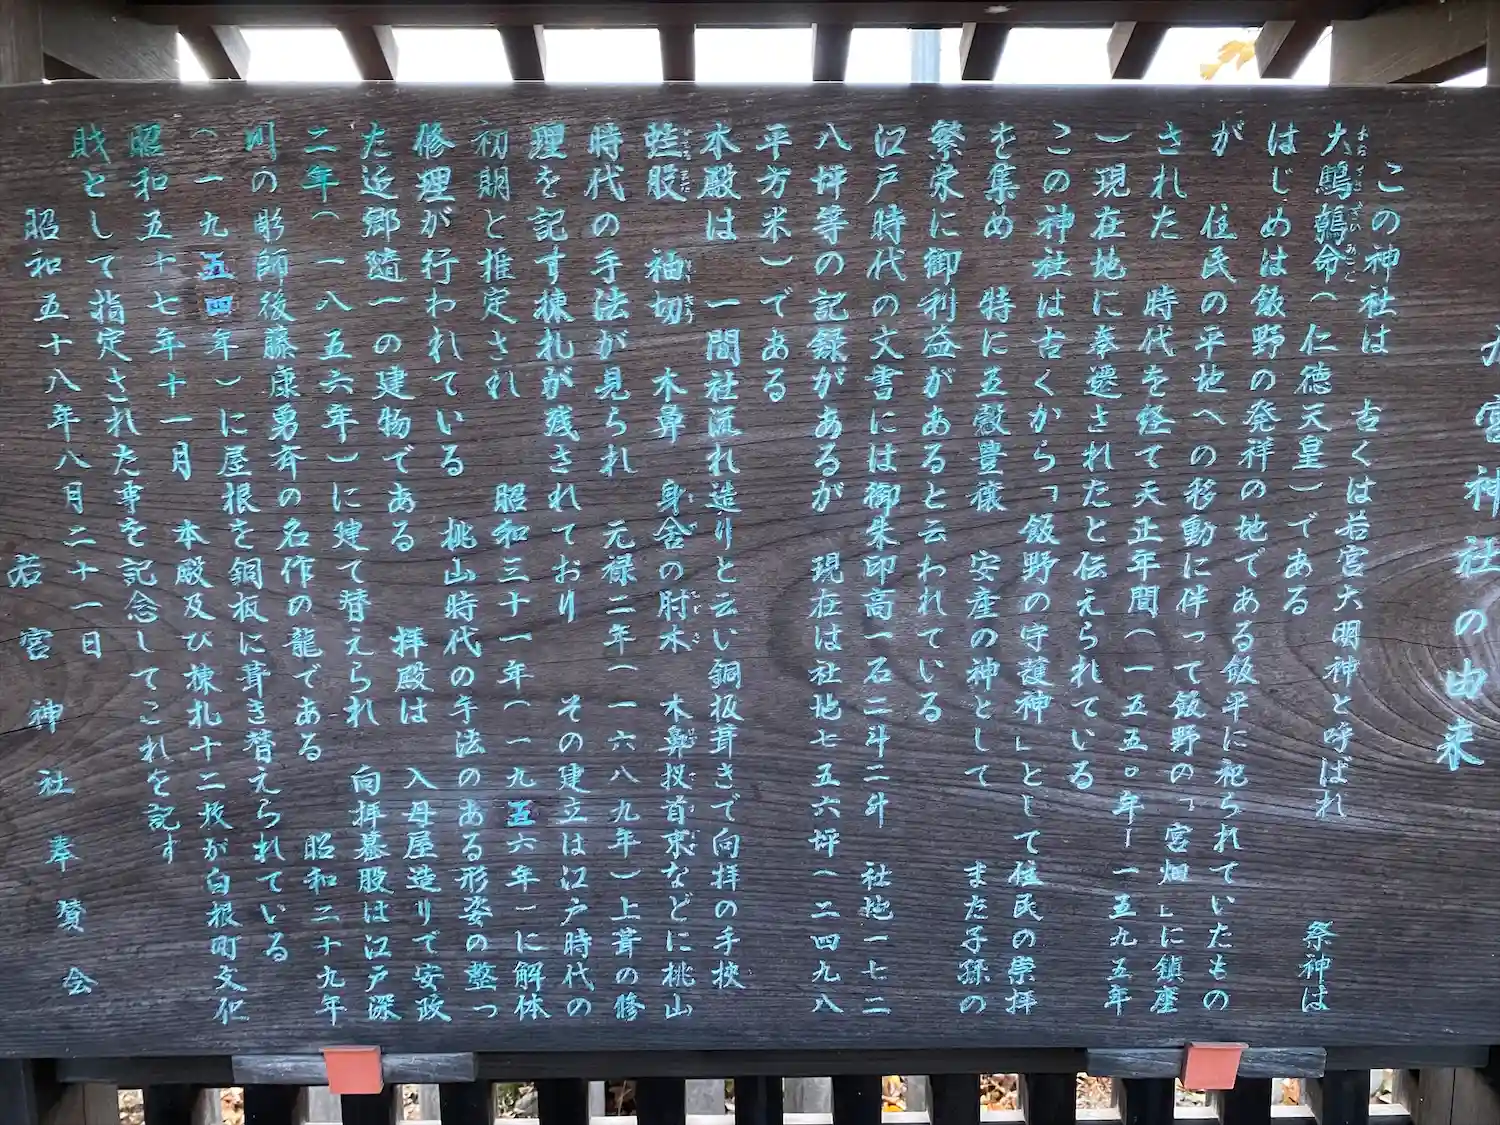 宮神社の由来
この神社は　古くは若宮大明神と呼ばれ　祭神は
大鷦鷯命（仁徳天皇）である
はじめは飯野の発祥の地である飯平に祀られていたもの
が　住民の平地への移動に伴って飯野の「宮畑」に鎮座
された　時代を経て天正年間（一五五〇年ー一五九五年
）現在地に奉遷されたと伝えられている
この神社は古くから「飯野の守護神」として住民の崇拝
を集め　特に五穀豊穣　安産の神として　また子孫の
繁栄に御利益があると云われている
江戸時代の文書には御朱印高一石二斗二升　社地一七二
八坪等の記録があるが　現在は社地七五六坪（二四九八
平方米）である
本殿は　一間社流れ造りと云い銅板葺きで向拝の手挾
蛙股　袖切　木鼻　身舎の肘木　木鼻扠首束などに桃山
時代の手法が見られ　元禄二年（一六八九年）上葺の修
理を記す棟札が残されており　その建立は江戸時代の
初期と推定され　昭和三十一年（一九五六年）に解体
修理が行われている　桃山時代の手法のある形姿の整っ
た近郷随一の建物である　拝殿は　入母屋造りで安政
二年（一八五六年）に建て替えられ　向拝蟇股は江戸深
川の彫師後藤康勇斉の名作の龍である　昭和二十九年
（一九五四年）に屋根を銅板に葺き替えられている
昭和五十七年十一月　本殿及び棟札十二枚が白根町文化
財として指定された事を記念してこれを記す
昭和五十八年八月二十一日
若宮神社奉賛会